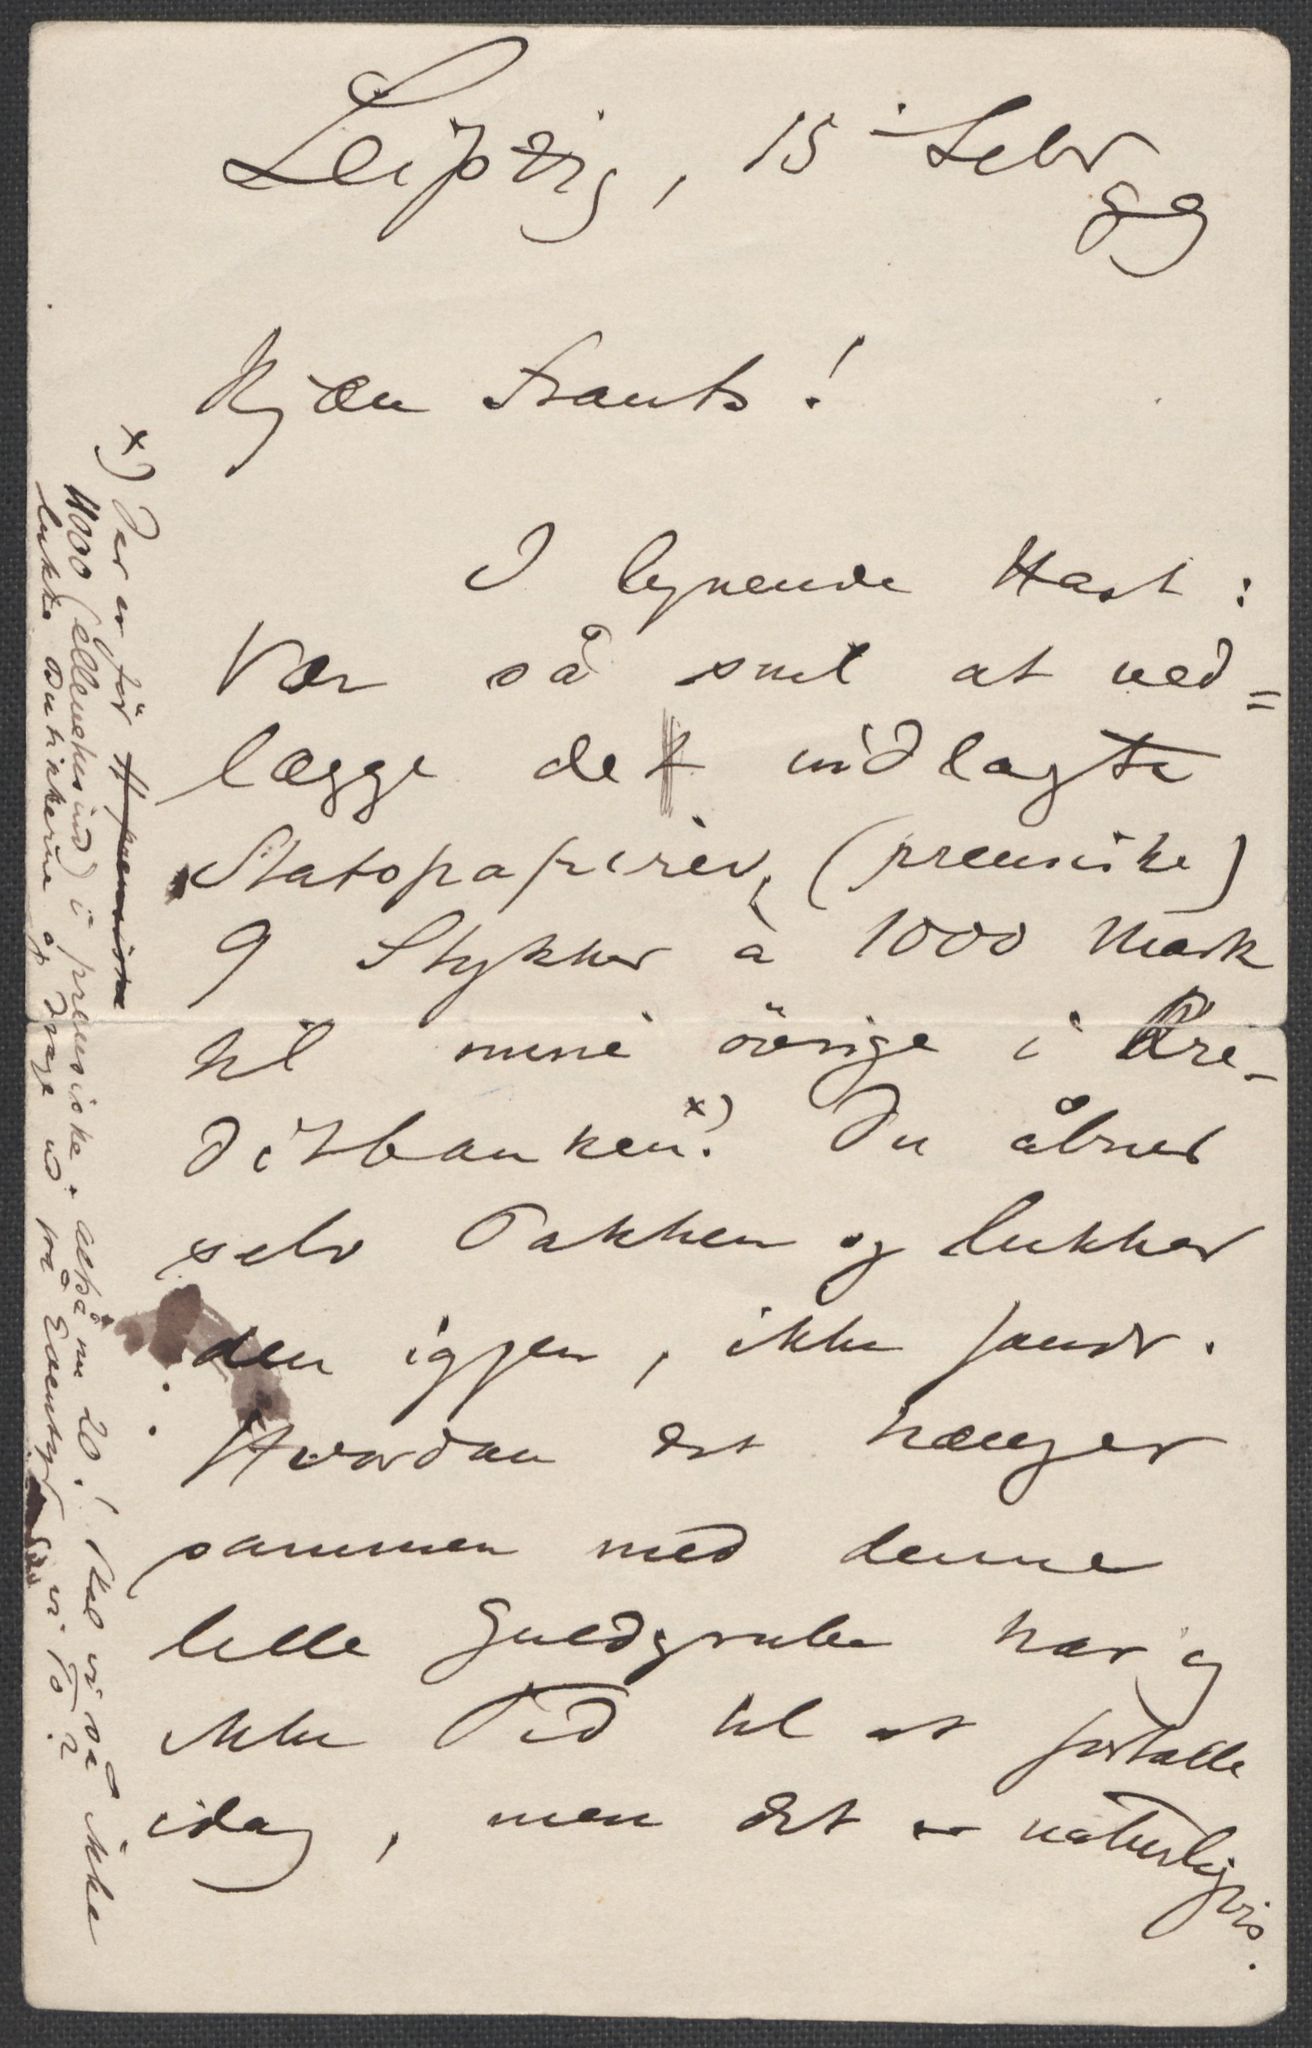 Leipzig, 15 Febr
89
Kjære Frants!
I lynende Hast:
Vær så snil at ned=
lægge de indlagte
Statspapirer, (preusiske)
9 Stykker à 1000 Mark
til mine övrige i Kre-
ditbanken x). Du åbner
selv Pakken og lukker
den igjen, ikke sandt.
Hvordan det hænger
sammen med denne
lille Guldgrube har jeg
ikke Tid til at fortælle
idag, men det er naturligvis.
x) Der er för
11000 (elletusind) i preusiske. altså nu 20! Skal vi så ikke
lukke Butikkerne og drage ud på Eventyr, vi To?